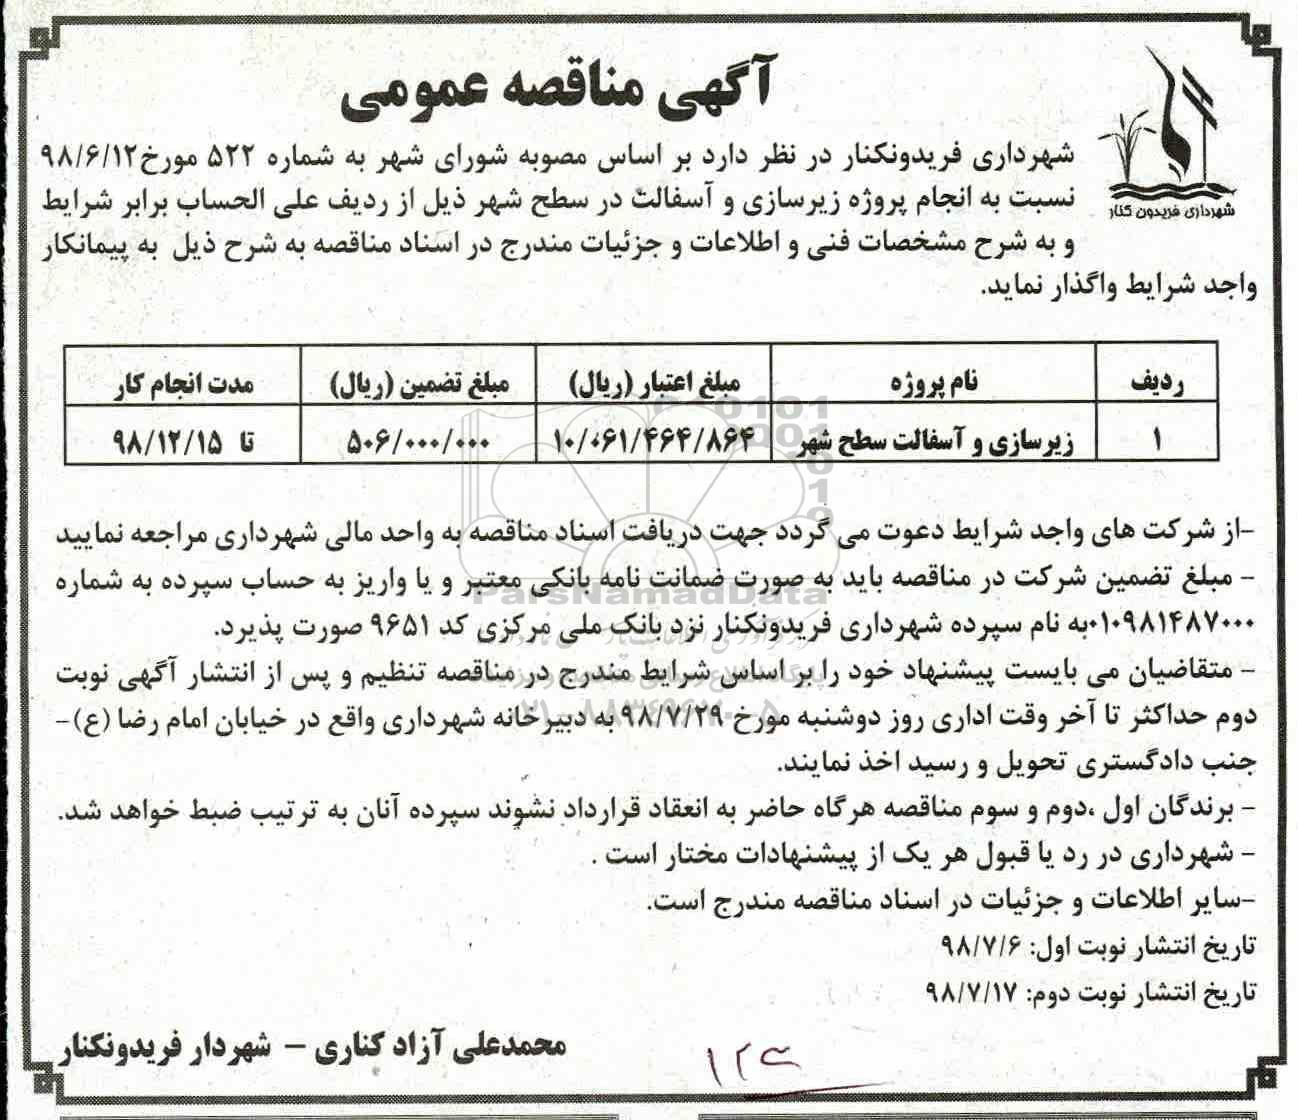 آگهی مناقصه عمومی
شهرداری فریدون کنار
شهرداری فریدونکنار در نظر دارد بر اساس مصوبه شورای شهر به شماره ۵۲۲ مورخ۹۸/۶/۱۲
نسبت به انجام پروژه زیرسازی و آسفالت در سطح شهر ذیل از ردیف علی الحساب برابر شرایط
و به شرح مشخصات فنی و اطلاعات و جزئیات مندرج در اسناد مناقصه به شرح ذیل به پیمانکار
واجد شرایط واگذار نماید.
ردیف نام پروژه مبلغ اعتبار (ریال) مبلغ تضمین (ریال) مدت انجام کار
۱ زیرسازی و آسفالت سطح شهر ۱۰/۰۶۱/۴۶۴/۸۶۴ ۵۰۶/۰۰۰/۰۰۰ تا ۹۸/۱۲/۱۵
-از شرکت های واجد شرایط دعوت می گردد جهت دریافت اسناد مناقصه به واحد مالی شهرداری مراجعه نمایید
- مبلغ تضمین شرکت در مناقصه باید به صورت ضمانت نامه بانکی معتبر و یا واریز به حساب سپرده به شماره
۰۱۰۹۸۱۴۸۷۰۰۰به نام سپرده شهرداری فریدونکنار نزد بانک ملی مرکزی کد ۹۶۵۱ صورت پذیرد.
ParsNamadData
- متقاضیان می بایست پیشنهاد خود را بر اساس شرایط مندرج در مناقصه تنظیم و پس از انتشار آگهی نوبت
دوم حداکثر تا آخر وقت اداری روز دوشنبه مورخ ۹۸/۷/۲۹ به دبیرخانه شهرداری واقع در خیابان امام رضا (ع)-
جنب دادگستری تحویل و رسید اخذ نمایند.
- برندگان اول ،دوم و سوم مناقصه هرگاه حاضر به انعقاد قرارداد نشوند سپرده آنان به ترتیب ضبط خواهد شد.
- شهرداری در رد یا قبول هر یک از پیشنهادات مختار است .
-سایر اطلاعات و جزئیات در اسناد مناقصه مندرج است.
تاریخ انتشار نوبت اول: ۹۸/۷/۶
تاریخ انتشار نوبت دوم: ۹۸/۷/۱۷
محمدعلی آزاد کناری - شهردار فریدونکنار